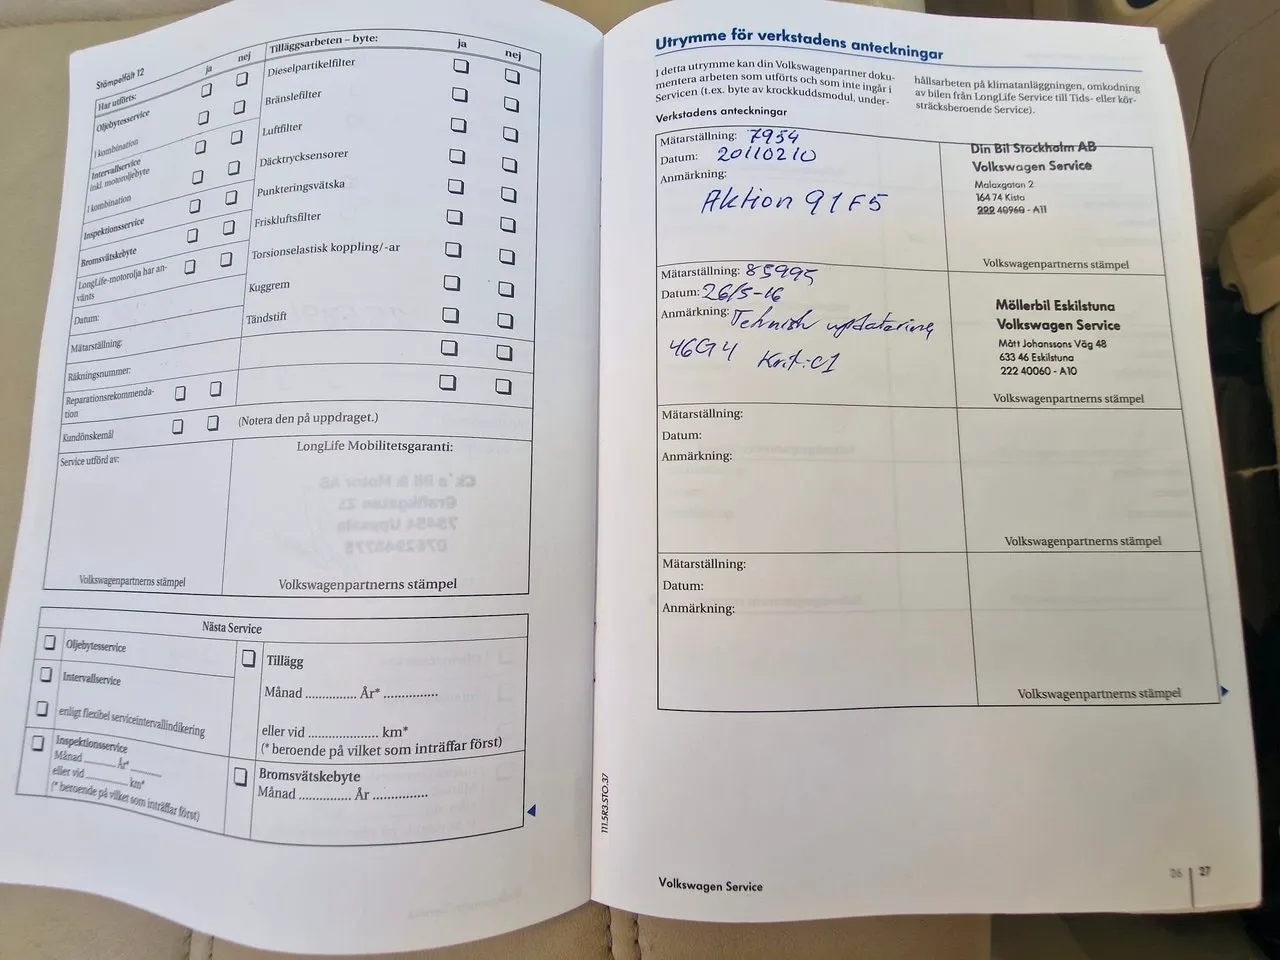 Stämpelfält 12
Har utförts:
ja
nej
Oljebytesservice
I kombination
Intervallservice
inkl. motoroljebyte
I kombination
Inspektionsservice
Bromsvätskebyte
LongLife-motorolja har an-
vänts
Datum:
Mätarställning:
Räkningsnummer:
Reparationsrekommenda-
tion
Kundönskemål
(Notera den på uppdraget.)
Tilläggsarbeten – byte:
ja
nej
Dieselpartikelfilter
Bränslefilter
Luftfilter
Däcktrycksensorer
Punkteringsvätska
Friskluftsfilter
Torsionselastisk koppling/-ar
Kuggrem
Tändstift
Service utförd av:
Volkswagenpartnerns stämpel
LongLife Mobilitetsgaranti:
Volkswagenpartnerns stämpel
Nästa Service
Oljebytesservice
Intervallservice
enligt flexibel serviceintervallindikering
Inspektionsservice
Månad ______ År* ______
eller vid ______ km*
(* beroende på vilket som inträffar först)
Tillägg
Månad .............. År* ...............
eller vid ................... km*
(* beroende på vilket som inträffar först)
Bromsvätskebyte
Månad .............. År ...............
Utrymme för verkstadens anteckningar
I detta utrymme kan din Volkswagenpartner doku-
mentera arbeten som utförts och som inte ingår i
Servicen (t.ex. byte av krockkuddsmodul, under-
hållsarbeten på klimatanläggningen, omkodning
av bilen från LongLife Service till Tids- eller kör-
sträcksberoende Service).
Verkstadens anteckningar
Mätarställning: 7954
Datum: 20110210
Anmärkning:
Aktion 91F5
Din Bil Stockholm AB
Volkswagen Service
Malaxgatan 2
164 74 Kista
222 40960 - A11
Volkswagenpartnerns stämpel
Mätarställning: 85995
Datum: 26/5-16
Anmärkning: Teknisk uppdatering
46G4 Krit: 01
Möllerbil Eskilstuna
Volkswagen Service
Mått Johanssons Väg 48
633 46 Eskilstuna
222 40060 - A10
Volkswagenpartnerns stämpel
Mätarställning:
Datum:
Anmärkning:
Volkswagenpartnerns stämpel
Mätarställning:
Datum:
Anmärkning:
Volkswagenpartnerns stämpel
111.5R3.STO.37
Volkswagen Service
26 | 27